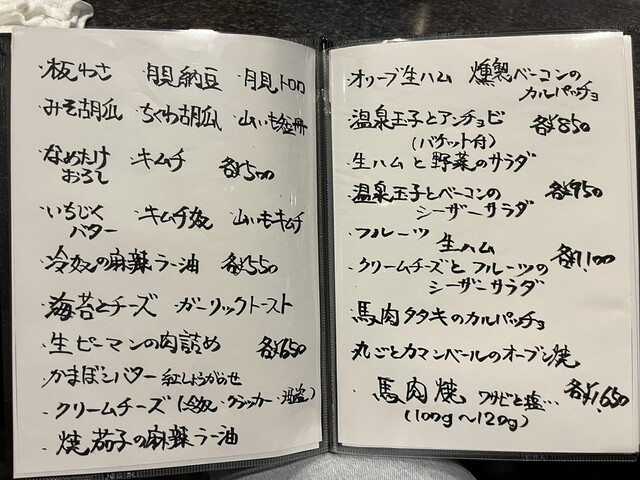 ・板わさ 月見納豆 ・月見トロロ
・みそ胡瓜 ちくわ胡瓜 ・山いも短冊
・なめたけおろし キムチ 各¥500
・いちじくバター ・キムチ奴 山いもキムチ
・冷奴の麻辣ラー油 各¥550
・海苔とチーズ ガーリックトースト
・生ピーマンの肉詰め 各¥650
・かまぼこバター 紅しょうがらせ
・クリームチーズ(冷奴・クラッカー・)
・焼茄子の麻辣ラー油
・オリーブ生ハム 燻製ベーコンの
カルパッチョ
・温泉玉子とアンチョビ 各¥850
(バケット付)
・生ハムと野菜のサラダ
・温泉玉子とベーコンの 各¥950
シーザーサラダ
・フルーツ 生ハム
・クリームチーズとフルーツの 各¥1,100
シーザーサラダ
・馬肉タタキのカルパッチョ
・丸ごとカマンベールのオーブン焼
・馬肉焼 ワサビと塩… 各¥1,650
(100g〜120g)